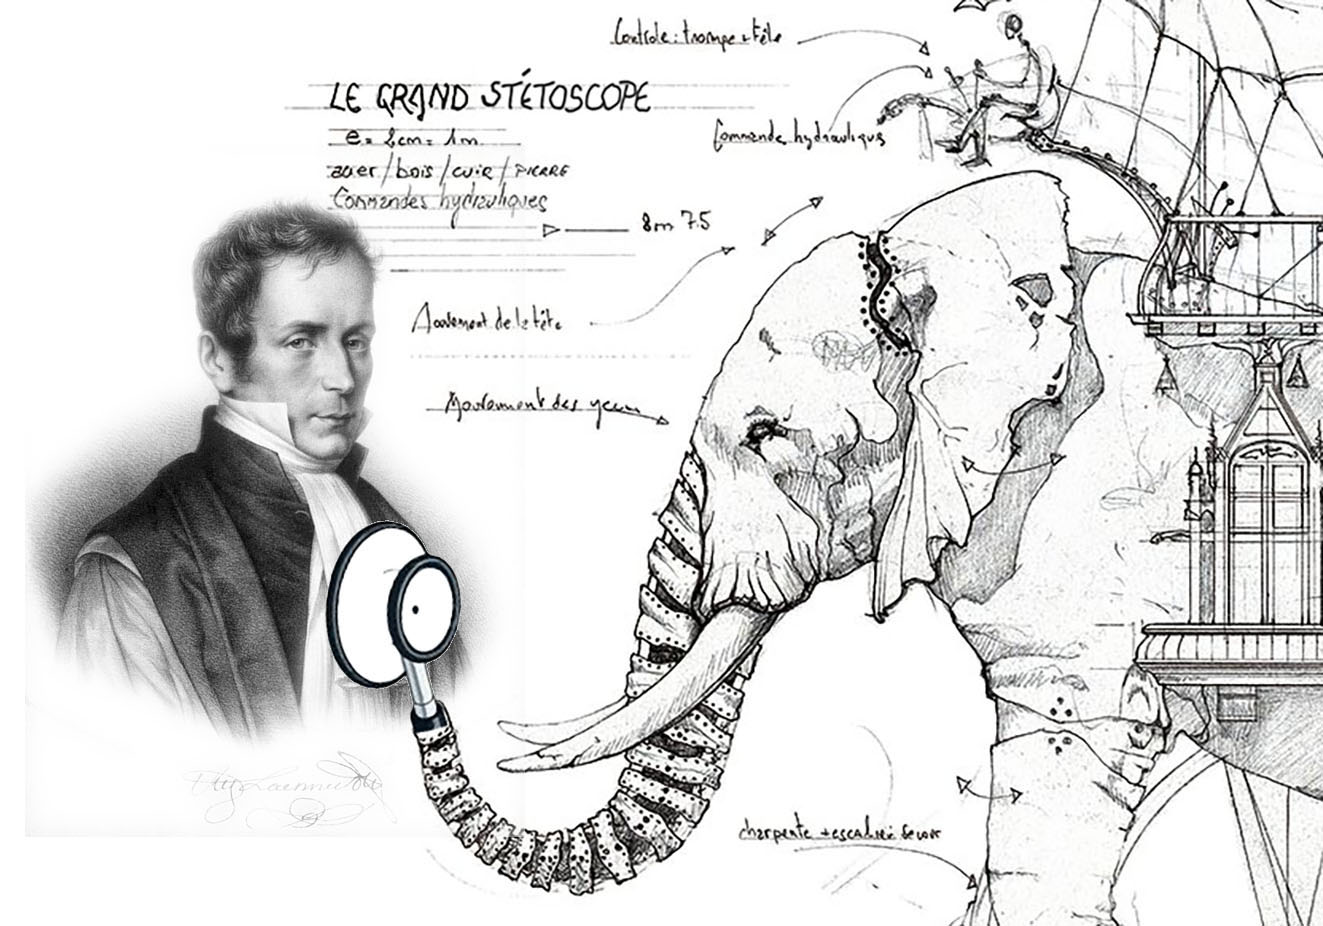 Controle : trompe + tête
LE GRAND STÉTOSCOPE
e = 2cm = 1m
Commande hydraulique
acier / bois / cuir / PIERRE
Commandes hydrauliques
8m 75
Mouvement de la tête
Mouvement des yeux
charpente + escalier